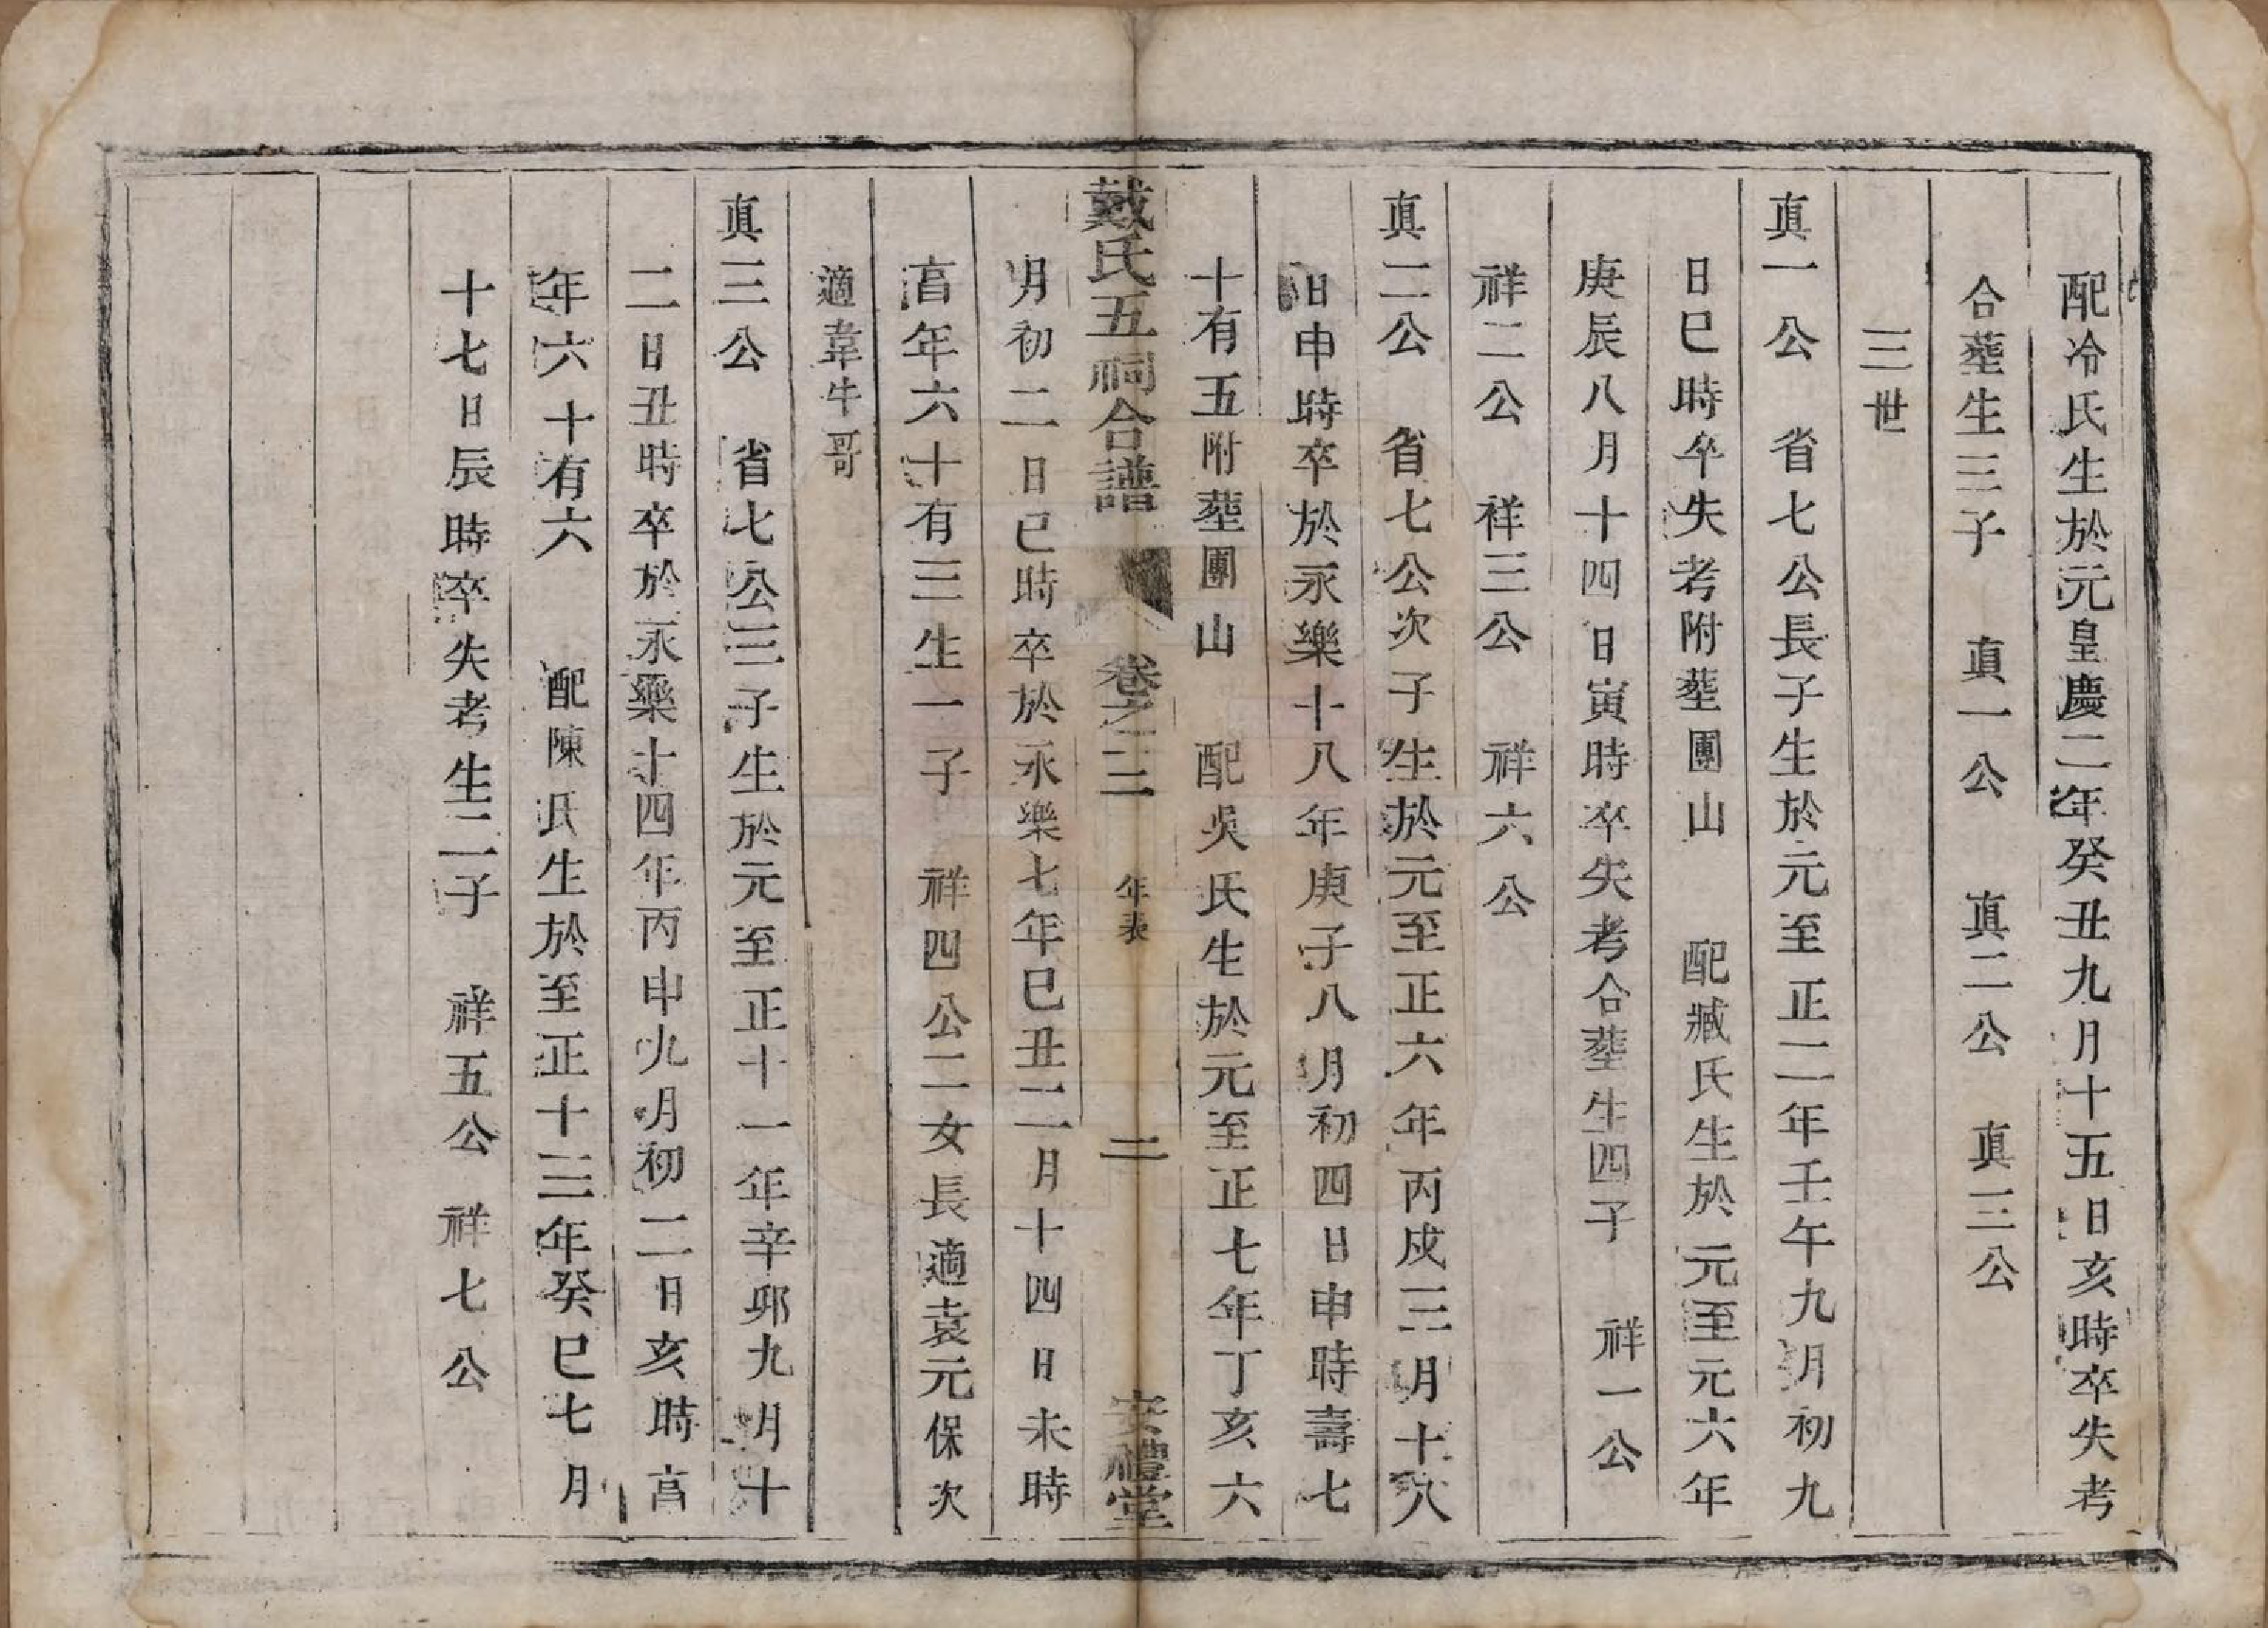 配冷氏生於元皇慶二年癸丑九月十五日亥時卒失考
合塟生三子 真一公 真二公 真三公
三世
真一公 省七公長子生於元至正二年壬午九月初九
日巳時卒失考附塟團山 配臧氏生於元至元六年
庚辰八月十四日寅時卒失考合塟生四子 祥一公
祥二公 祥三公 祥六公
真二公 省七公次子生於元至正六年丙戍三月十八
日申時卒於永樂十八年庚子八月初四日申時壽七
十有五附塟團山 配吳氏生於元至正七年丁亥六
戴氏五祠合譜 卷之二 年表 二 安禮堂
月初二日巳時卒於永樂七年巳丑二月十四日未時
亯年六十有三生一子 祥四公二女長適袁元保次
適韋牛哥
真三公 省七公三子生於元至正十一年辛夘九月十
二日丑時卒於永樂十四年丙申九月初二日亥時亯
年六十有六 配陳氏生於至正十三年癸巳七月
十七日辰時卒失考生二子 祥五公 祥七公